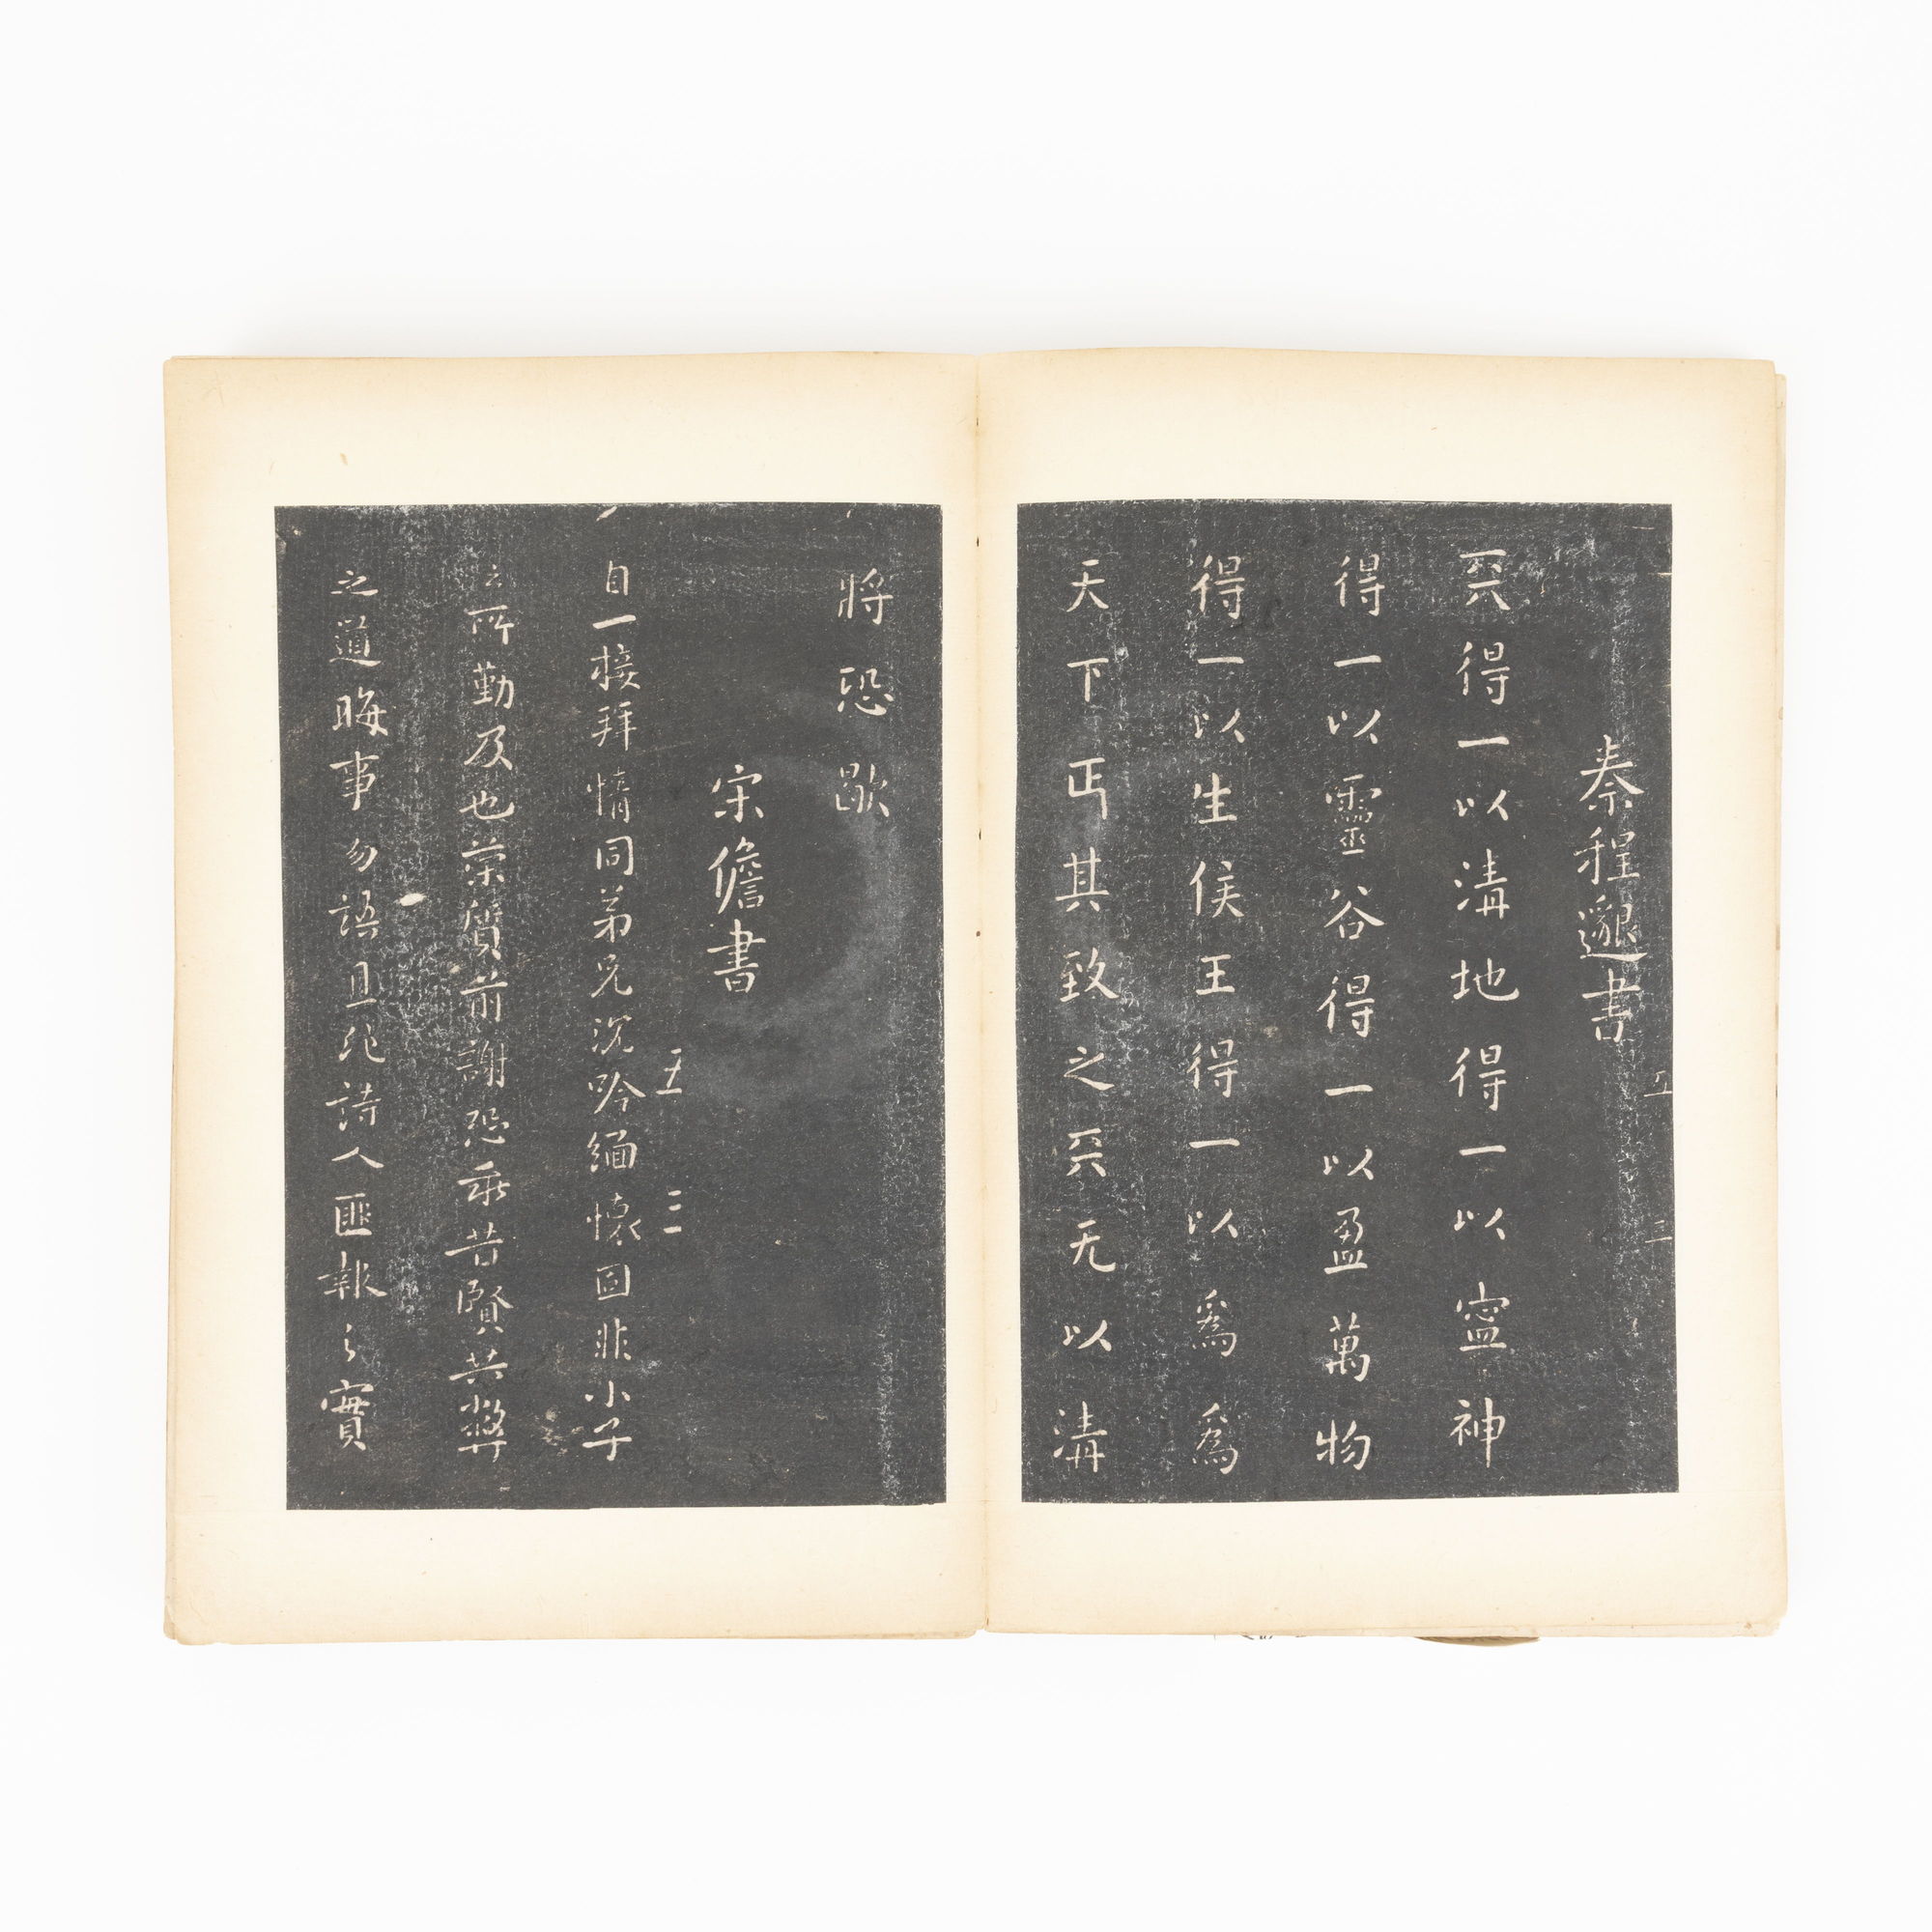 秦程邈書
五 二
天得一以清地得一以寍神
得一以靈谷得一以盈萬物
得一以生侯王得一以爲爲
天下正其致之天无以清
將恐歇
宋儋書
五 三
自一接拜情同弟兄沈吟緬懷固非小子
之所勤及也榮質前謝恐乖昔賢共獎
之道晦事勿語且絕詩人匪報之實